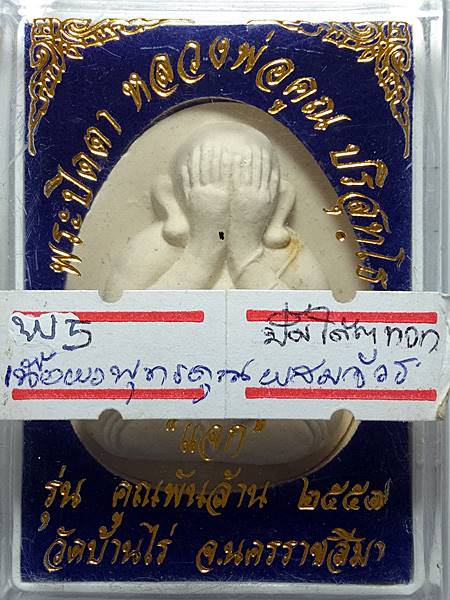 พระปิดตา หลวงพ่อคูณ ปริสุทฺโธ
พ5
พิมพ์ใต้ฯ ทอท
เนื้อผงพุทธคูณ ผสมจีวร
"แจก"
รุ่น คูณพันล้าน ๒๕๕๗
วัดบ้านไร่ จ.นครราชสีมา